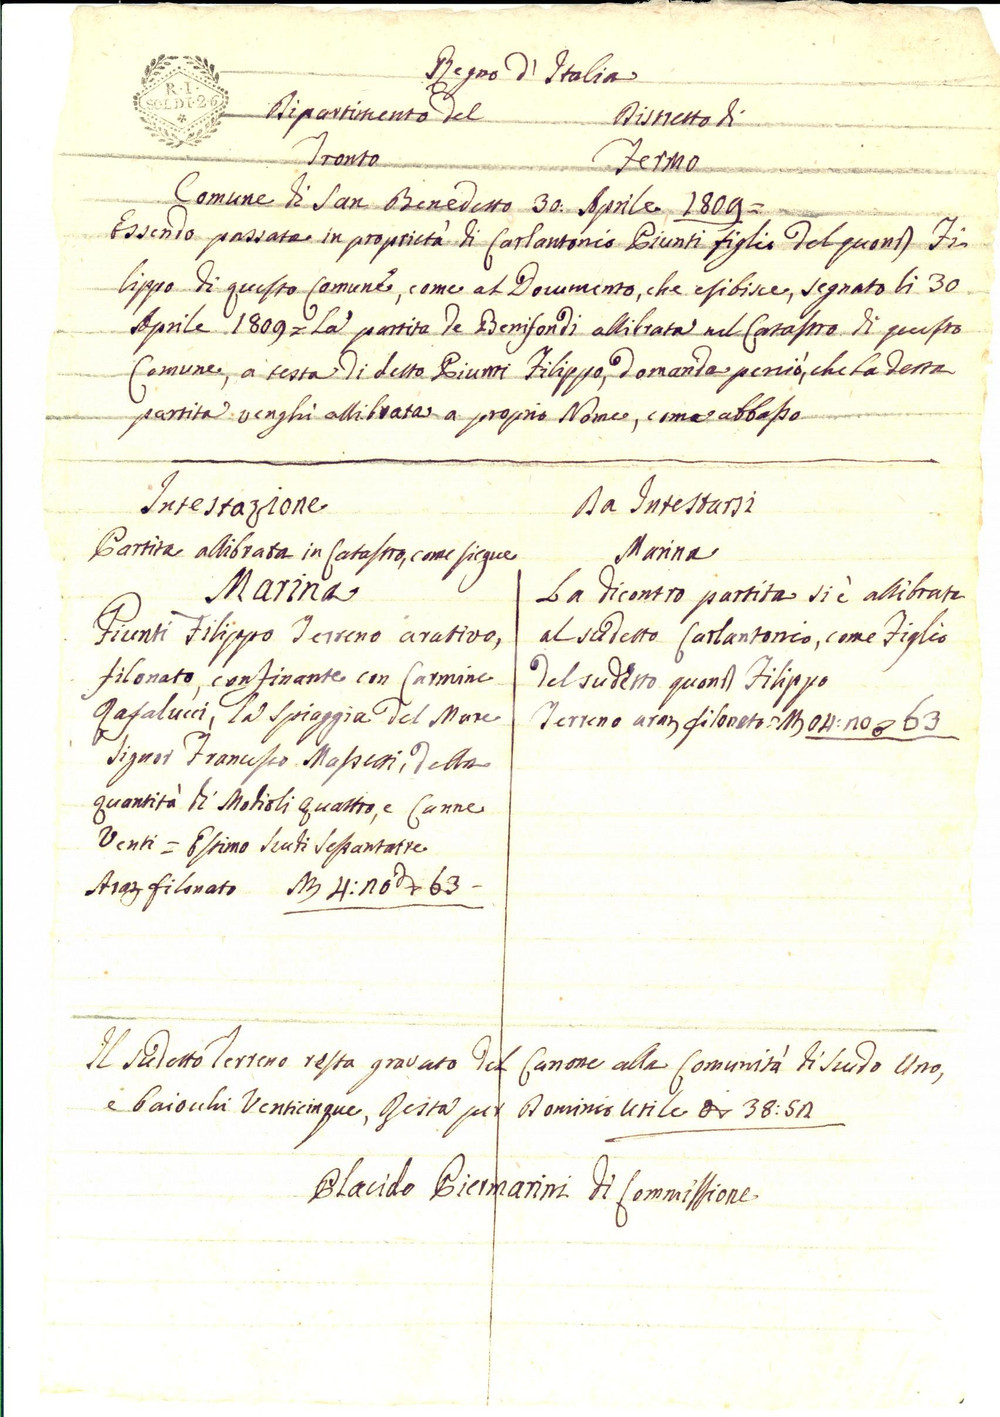 R. I.
SOLDI 26
Regno d'Italia
Dipartimento del
Distretto di
Tronto
Fermo
Comune di San Benedetto 30. Aprile 1809=
Essendo passata in proprietà di Carlantonio Piunti figlio del quond Fi-
lippo di questo Comune, come al Documento, che esibisce, segnato li 30
Aprile 1809= La partita de Benifondi allibrata nel Catastro di questo
Comune, a testa di detto Piunti Filippo, domanda perciò, che la detta
partita venghi allibrata a proprio Nome, come abbasso
Intestazione
Partita allibrata in Catastro, come siegue
Marina
Piunti Filippo Terreno arativo,
filonato, confinante con Carmine
la Spiaggia del Mare
Signor Francesco Massetti, della
quantità di Modioli quattro, e Canne
Venti = Estimo Scudi Sessantatre
filonato M 4:20 63 -
Da Intestarsi
Marina
La dicontro partita si è allibrata
al sudetto Carlantonio, come Figlio
del sudetto quond Filippo
Terreno filonato = M 04:20 63
Il sudetto Terreno resta gravato del Canone alla Comunità di Scudo Uno,
e baiocchi Venticinque, Resta per Dominio Utile 38:50
Placido Piermarini di Commissione